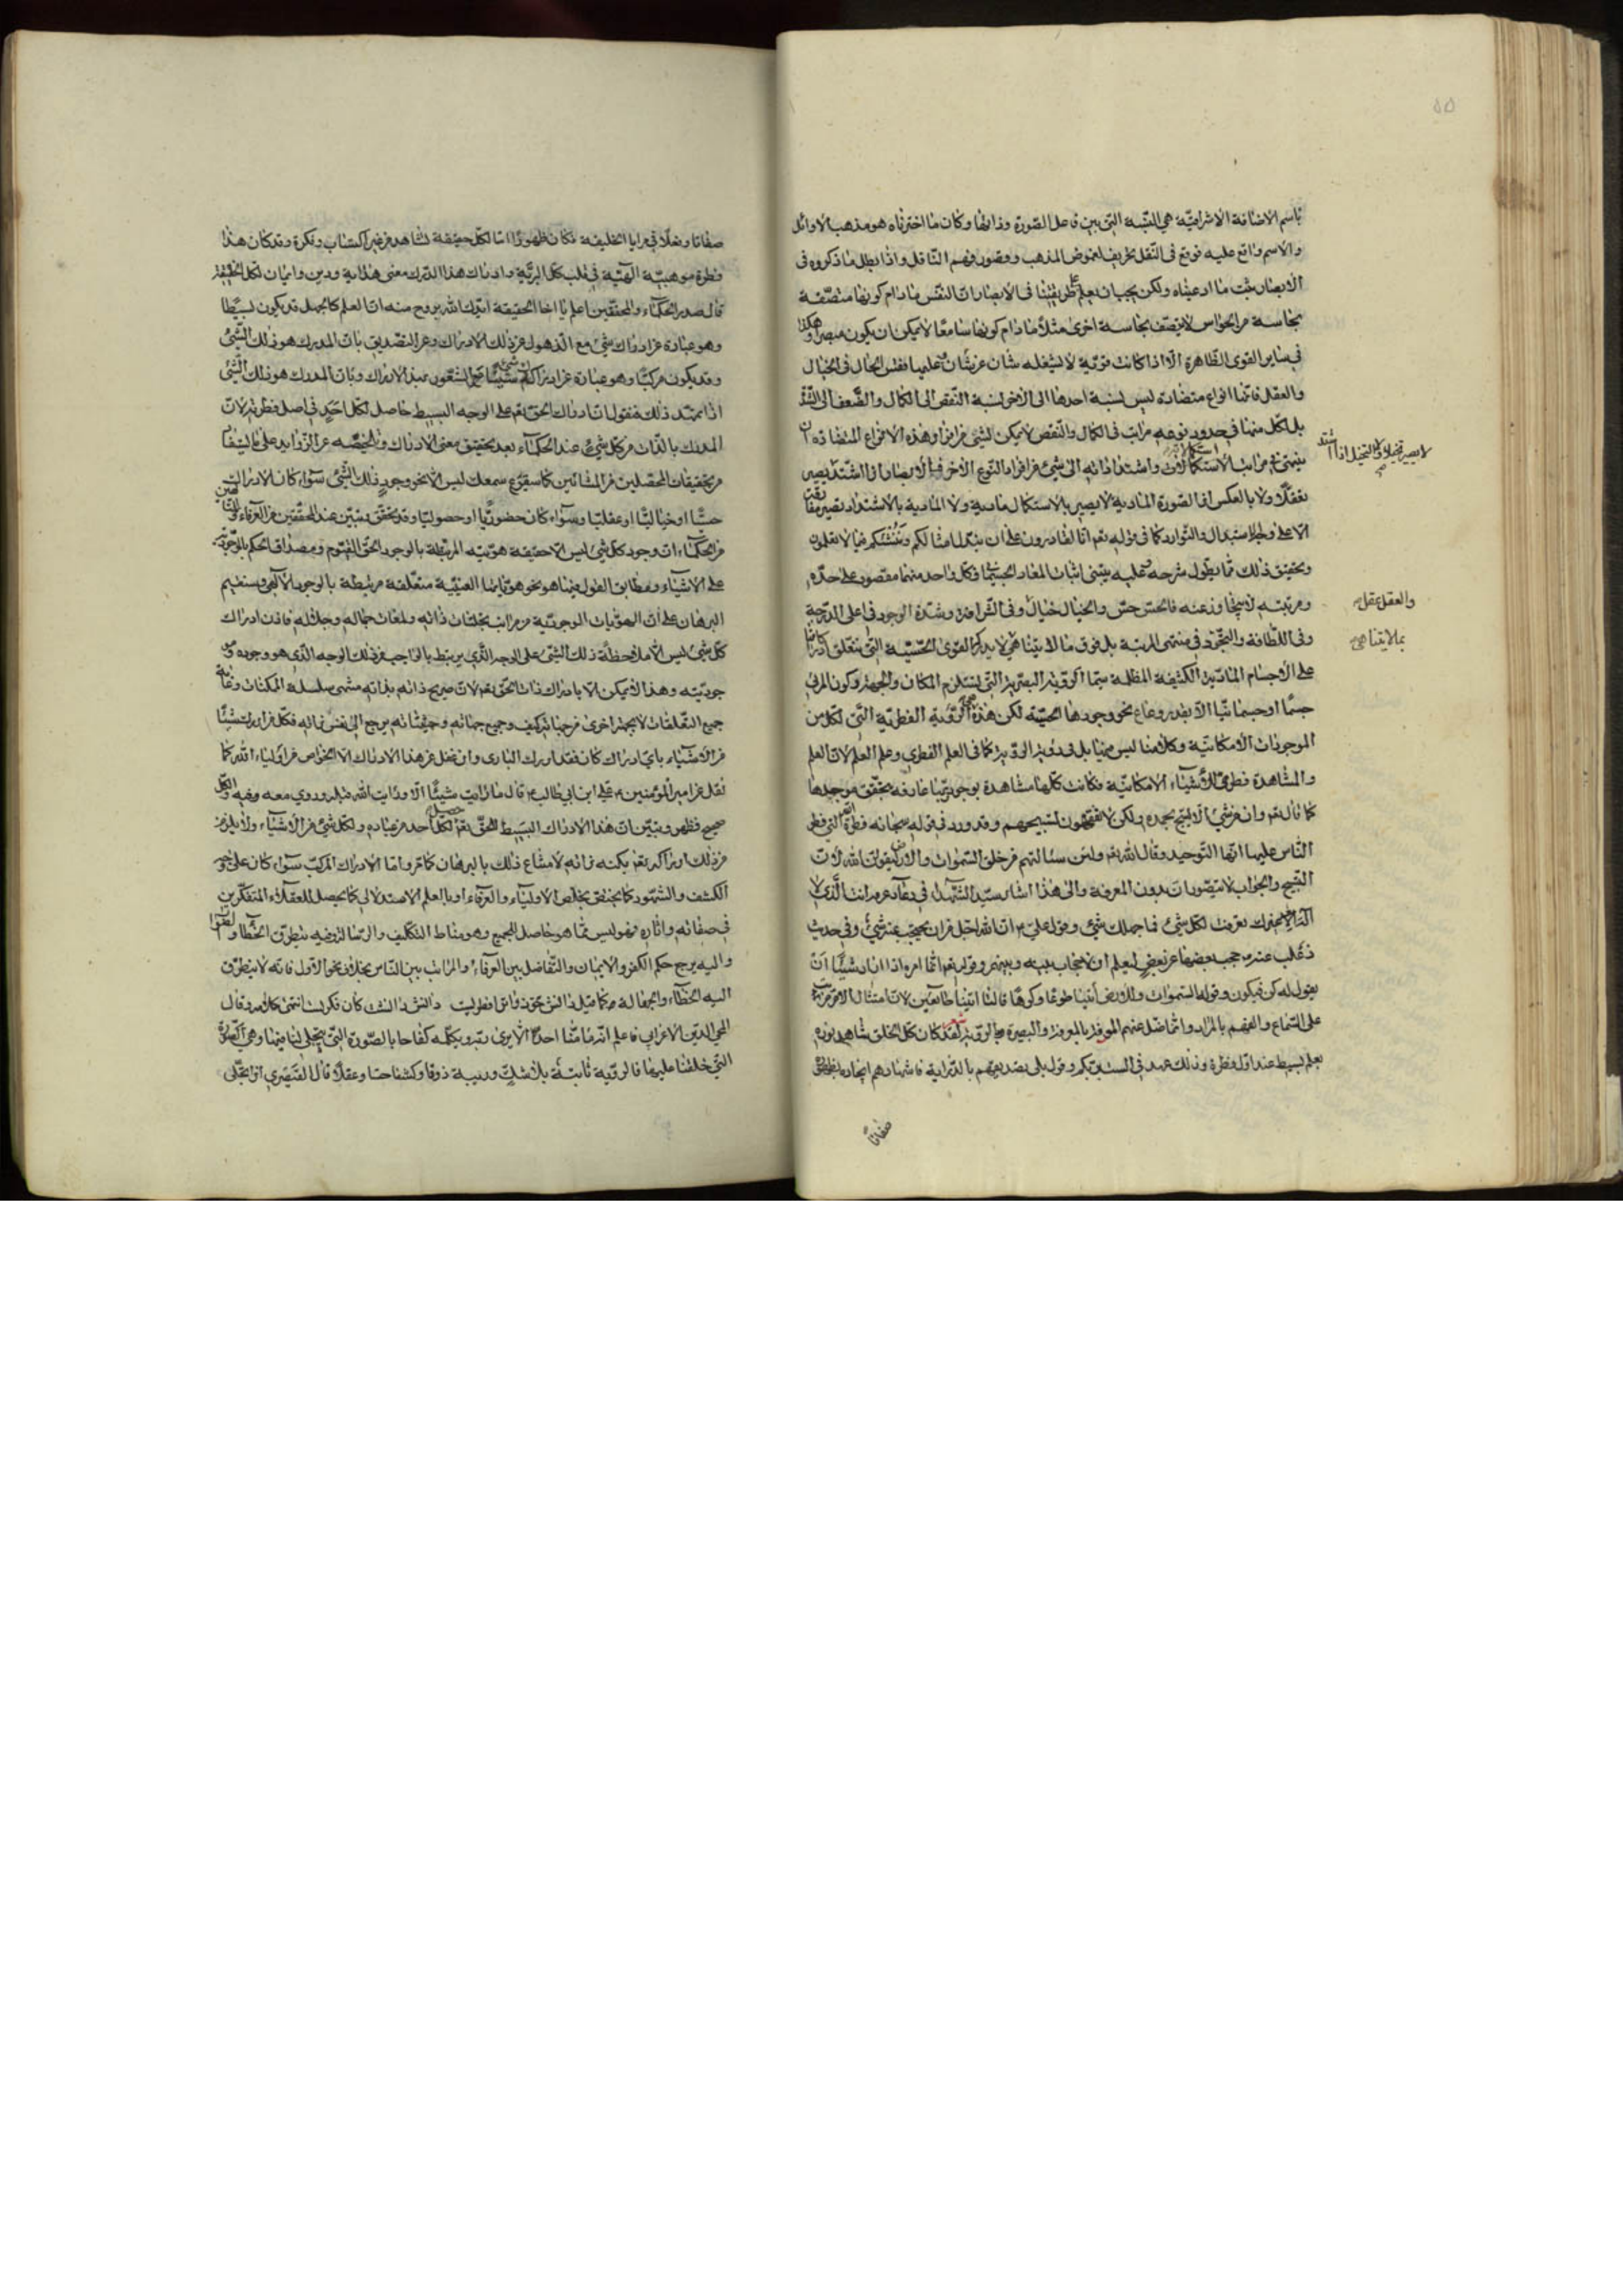 باسم الاضافة الاشراقيّة هي النّسبة التي بين فاعل الصّورة وذاتها وكان ما اخترناه هو مذهب الاوائل
والاسم واقع عليه فوقع فى النّقل تحريف لغموض المذهب وقصور فهم النّاقل واذا بطل ما ذكروه فى
الابصار ثبت ما ادعيناه ولكن يجب ان يعلم على طريقتنا فى الابصار انّ النّفس مادام كونها متصّفة
بحاسة من الحواس لا يتصّف بحاسة اخرى مثلًا مادام كونها سامعًا لا يمكن ان يكون مبصرا وهكذا
فى ساير القوى الظّاهرة الّا اذا كانت قوّية لا يشغله شان عن شان وعليها فقس الحال فى الخيال
والعقل فانّها انواع متضادة ليس نسبة احدها الى الاخر نسبة النّقص الى الكمال والضّعف الى الشّدّة
بل لكلّ منها فى حدود نوعه مراتب فى الكمال والنّقص لا يمكن لشئ من افراد هذه الانواع المتضادة ان
ينتهى فى مراتب الاستكمالات واشتداداته الى شئ من افراد النّوع الاخر فالابصار اذا اشتدّ يصير
لا يصير تخيلا ولا التخيل اذا اشتد
تعقلًا ولا بالعكس اذ الصّورة المادية لا يصير بالاستكمال
الا على وجه الاستبدال والتّوارد كما فى قوله تعالى انّا لقادرون على ان نبدّل امثالكم وننشئكم فيما لا تعلمون
وتحقيق ذلك ممّا يطول شرحه وعليه يبتنى اثبات المعاد الجسمانى فكلّ واحد منها مقصور على حدّه
ومرتبته لا يتجاوز عنه فالحسّ حسّ والخيال خيال وفى الشّرافة وشدّة الوجود فى اعلى الدّرجة
والعقل عقل
وفى اللّطافة والتّجرّد فى منتهى المرتبة بل فوق ما لا يتناهى لا يدركه القوى الحسّيّة التى يتعلّق ادراكها
بما لا يتناهى
على الاجسام المادّية الكثيفة المظلمة سيّما الرّؤية البصريّة التى يستلزم المكان والجهة وكون المرئى
جسمًا او جسمانيّا الّا بقدر وعاء نحو وجودها الحسّيّة لكن هذه الرّؤية الفطريّة التّى لكلّ من
الموجودات الامكانيّة وكلامنا ليس فيها بل فى رؤية الرّؤية كما فى العلم الفطرى وعلم العلم لانّ العلم
والمشاهدة فطرىّ للاشياء الامكانيّة فكانت كلّها مشاهدة لوجود ربّها عارفه بحقّ موجدها
كما قال تعالى وان من شئ الّا يسبّح بحمده ولكن لا تفقهون تسبيحهم وقد ورد فى قوله سبحانه فطرة اللّه التى فطر
النّاس عليها انّها التّوحيد وقال اللّه تعالى ولئن سئالتهم من خلق السّموات والارض ليقولنّ اللّه لانّ
التّسبيح والجواب لا يتصوّران بدون المعرفة والى هذا اشار سيّد الشّهداء فى دعاء عرفة انت الّذى لا
اله غيرك تعرفت لكلّ شئ فما جهلك شئ وقول علىّ انّ اللّه اجلّ من ان يحتجب عنه شئ وفى حديث
ذعلب عنه حجب بعضها عن بعضٍ ليعلم ان لا حجاب بينه وبينهم وقوله تعالى انّما امره اذا اراد شيئًا ان
يقول له كن فيكون وقوله للسّموات وللارض ائتيا طوعًا او كرهًا قالتا اتينا طائعين لانّ امتثال الامر مرتبة
على السّماع والفهم بالمراد
بعلم بسيط عند اوّل فطرة وذلك عهد فى الست بربّكم وقول بلى تصديقهم بالدّراية فاشهادهم
صفاتا
صفاتا وفعلًا فى مرايا الخليقة فكان ظهورا امّا لكلّ حقيقة لشاهد من غير اكتساب وفكرة وقد كان هذا
فطرة موهبيّة الهيّة فى قلب كلّ البريّة وادراك هذا الدّرك معنى هداية ودين وايمان لكلّ الخليقة
قال صدر الحكماء والمحقّقين اعلم يا اخا الحقيقة ايّدك اللّه بروح منه انّ العلم كالجهل قد يكون بسيطا
وهو عبارة عن ادراك شئ مع الذّهول عن ذلك الادراك وعن التّصديق بانّ المدرك هو ذلك الشّئ
وقد يكون مركبًا وهو عبارة عن ادراك شئ مع الشّعور بهذا الادراك وبانّ المدرك هو ذلك الشّئ
اذا تمهّد ذلك فنقول انّ ادراك الحقّ تعالى على الوجه البسيط حاصل لكلّ احدٍ فى اصل فطرته لانّ
المدرك بالذّات من كلّ شئ عند الحكماء بعد تحقيق معنى الادراك وتلخيصه عن الزّوايد على ما يستفاد
من تحقيقات المحصّلين من المشائين كما سيقرع سمعك ليس الّا نحو وجود ذلك الشّئ سوآء كان الادراك
حسًّا او خياليًّا او عقليّا وسوآء كان حضوريّا او حصوليّا وقد تحقّق وتبيّن عند المحقّقين من العرفاء والمتألهين
من الحكماء انّ وجود كلّ شئ ليس الّا حقيقة هويّته المرتبطة بالوجود الحقّ القيّوم ومصداق الحكم بالموجوديّة
على الاشياء ومطابق القول فيها هو نحو هويّاتها العينيّة متعلّقة مرتبطة بالوجود الالهى وسنقيم
البرهان على انّ الهويّات الوجوديّة من مراتب تجليّات ذاته ولمعات جماله وجلاله فاذن ادراك
كلّ شئ ليس الّا ملاحظة ذلك الشئ على الوجه الّذى يرتبط بالواجب من ذلك الوجه الّذى هو وجوده ومو
جوديّته وهذا لا يمكن الا بادراك ذات الحقّ تعالى لانّ صريح ذاته بذاته منتهى سلسلة الممكنات وغاية
جميع التّعلّقات لا بجهة اخرى من جهاته كيف وجميع جهاته وحيثيّاته يرجع الى نفس ذاته فكلّ من ادرك شيئًا
من الاشياء باىّ ادراك كان فقد ادرك البارى وان غفل عن هذا الادراك الّا الخواص من اولياء اللّه كما
نقل عن امير المؤمنين على ابن ابى طالب قال ما رايت شيئًا الّا ورايت اللّه قبله وروى معه وفيه والكلّ
صحيح فظهر وتبيّن انّ هذا الادراك البسيط للحقّ تعالى حصل لكلّ احد من عباده ولكلّ شئ من الاشياء ولا يلزم
من ذلك ادراكه تعالى بكنه ذاته لامتناع ذلك بالبرهان كما مرّ وامّا الادراك المركّب سوآء كان على نحو
الكشف والشّهود كما يختصّ بخلّص الاولياء والعرفاء او بالعلم الاستدلالى كما يحصل للعقلاء المتفكّرين
فى صفاته واثاره فهو ليس ممّا هو حاصل للجميع وهو مناط التّكليف والرّسالة وفيه يتطرّق الخطأ والصّواب
واليه يرجع حكم الكفر والايمان والتّفاضل بين العرفاء والمراتب بين النّاس بخلاف نحو الاوّل فانّه لا يتطرّق
اليه الخطاء والجهالة
محى الدّين الاعرابى فاعلم انّه ما منّا احد الّا يرى ربّه ويكلّمه كفاحا بالصّورة التّى يتجلّى لنا فيها وهى الصّورة
التى خلقنا عليها فالرؤية ثابتة بلا شكّ وريبة ذوقا وكشفا حسّا وعقلًا قال القيصرى